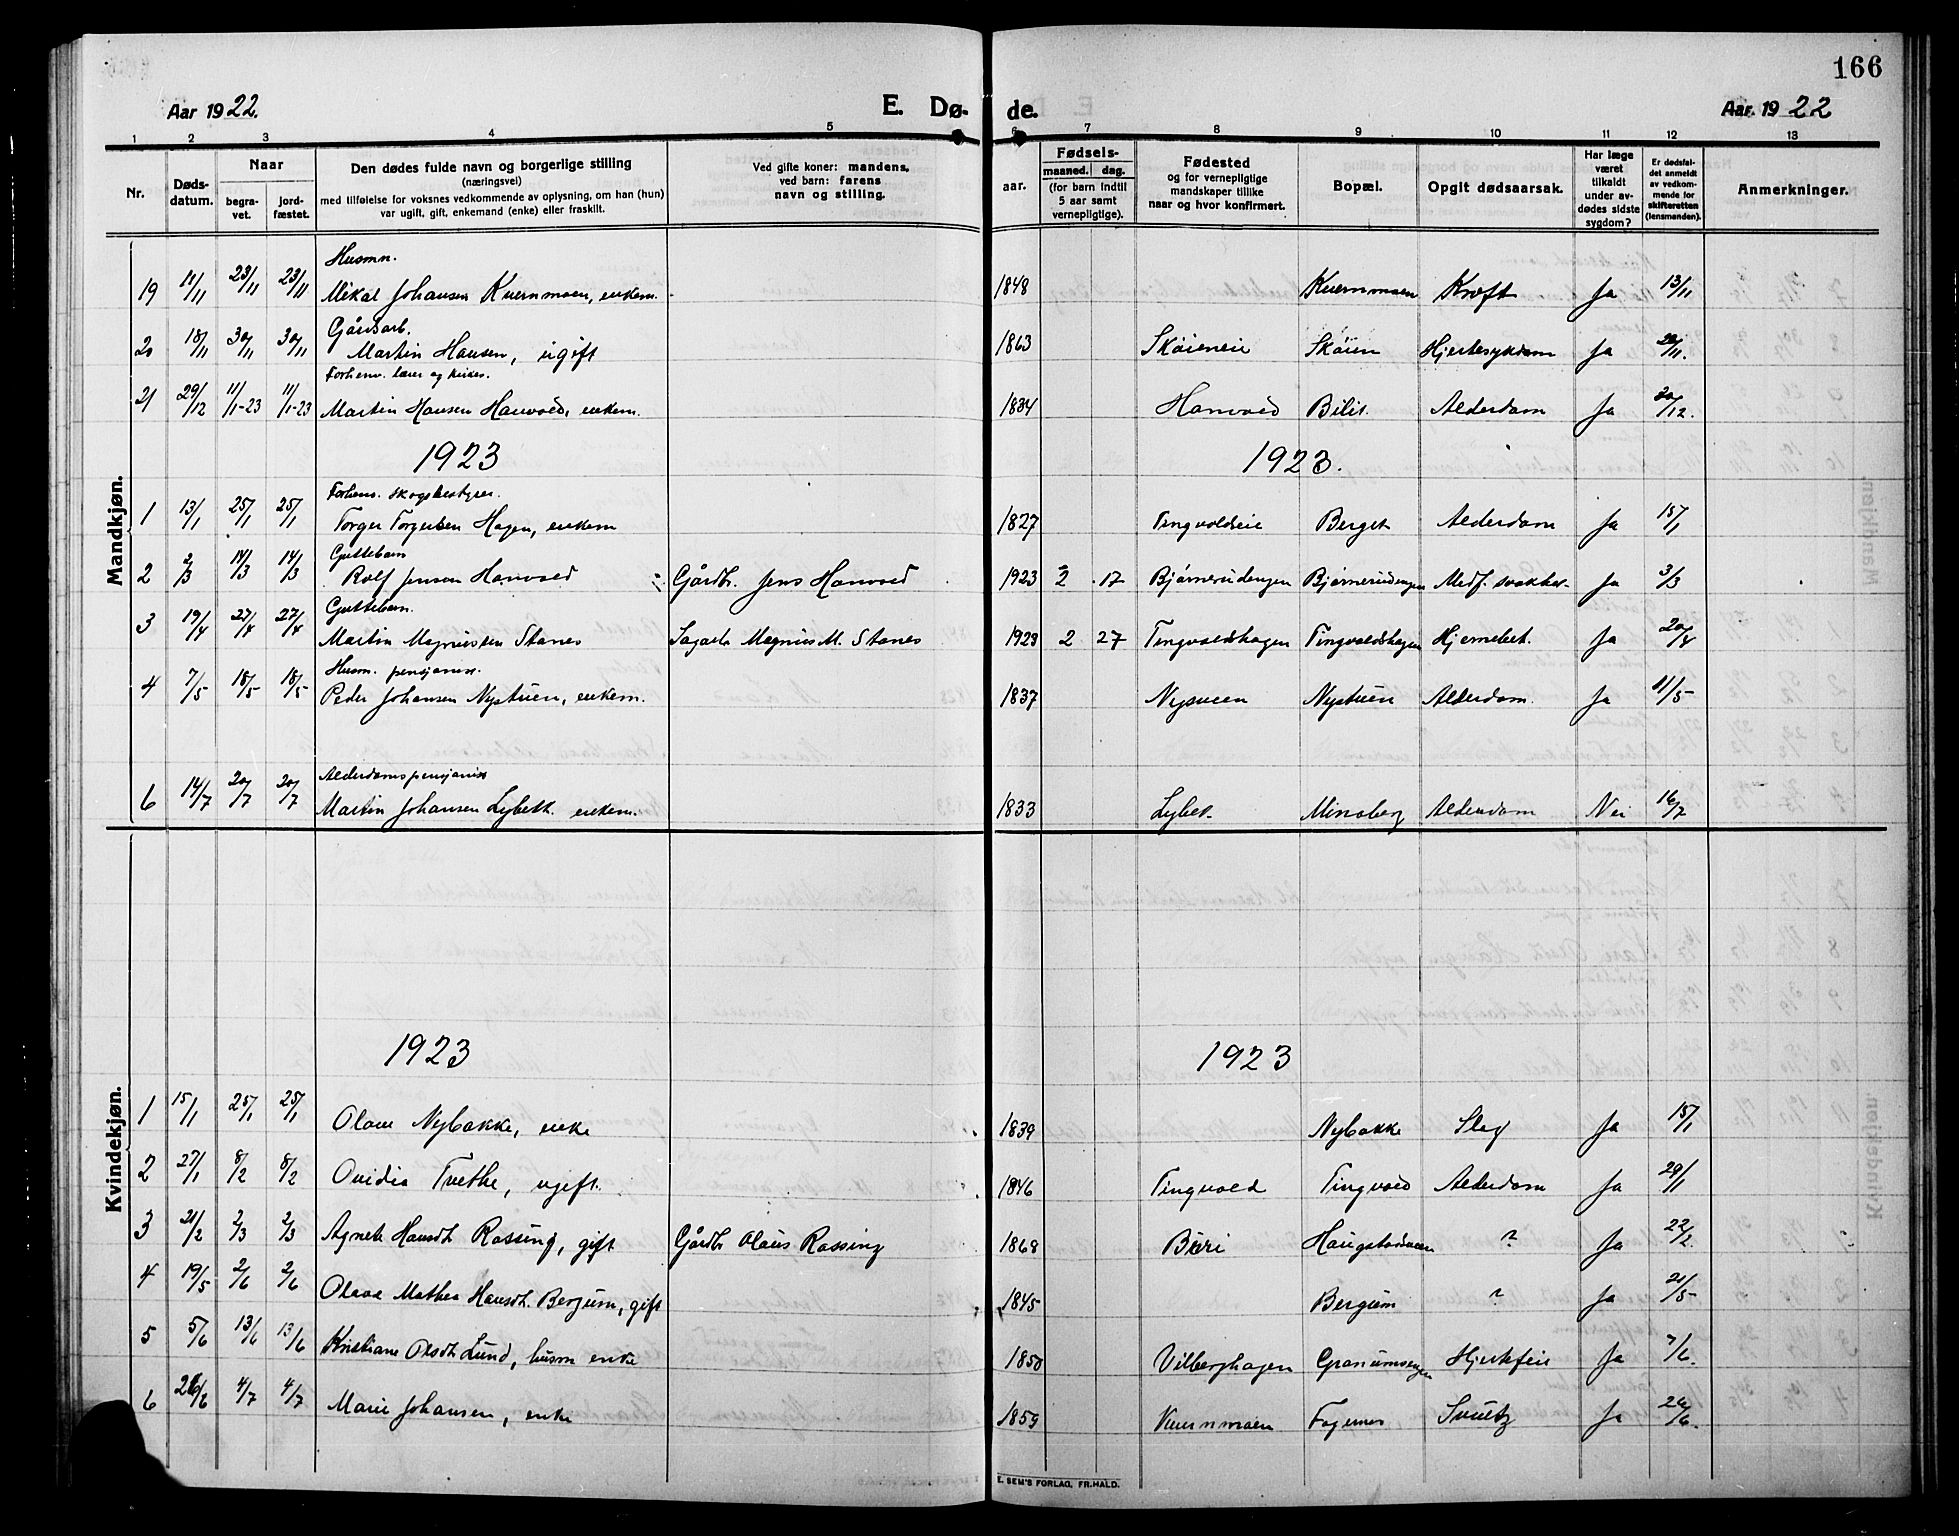 166
Aar 1922. E. Dø- de. Aar. 1922
1 2 3 4 5 6 7 8 9 10 11 12 13
Nr. Døds-datum. Naar begra-vet. jord-fæstet. Den dødes fulde navn og borgerlige stilling (næringsvei) med tilføielse for voksnes vedkommende av oplysning, om han (hun) var ugift, gift, enkemand (enke) eller fraskilt. Ved gifte koner: mandens, ved barn: farens navn og stilling. aar. Fødsels- maaned. dag. (for barn indtil 5 aar samt vernepligtige). Fødested og for vernepligtige mandskaper tillike naar og hvor konfirmert. Bopæl. Opgit dødsaarsak. Har læge været tilkaldt under av-dødes sidste sygdom? Er dødsfal-det anmeldt av vedkom-mende for skifteretten (lensmanden). Anmerkninger.
Mandkjøn.
Husmn.
19 11/11 23/11 23/11 Mikal Johansen Kvernmoen, enkem. 1848 Kvernmoen Kræft Ja 13/11
Gårdsarb.
20 18/11 30/11 30/11 Martin Hansen, ugift 1863 Skøieneie Skøien Hjertesykdom Ja 20/11.
Forhenv. lærer og kirkes.
21 29/12 11/1-23 11/1-23 Martin Hansen Hanvold, enkem. 1834 Hanvold Bilit. Alderdom Ja 30/12.
1923 1923.
Forhenv. skogbestyrer.
1 13/1 25/1 25/1 Torger Torgersen Hagen, enkem 1827 Tingvoldseie Berget Alderdom Ja 15/1
Guttebarn
2 2/3 14/3 14/3 Rolf Jensen Hanvold Gårdbr. Jens Hanvold 1923 2 17 Bjørnerudengen Bjørnerudengen Medf. svakhet Ja 3/3
Guttebarn.
3 19/4 27/4 27/4 Martin Magnussen Stanes Sagarb. Magnus M. Stanes 1923 2 27 Tingvoldshagen Tingvoldshagen Hjernebet. Ja 20/4
Husm. pensjonist.
4 7/5 18/5 18/5 Peder Johansen Nystuen, enkem. 1837 Nysveen Nystuen Alderdom. Ja 11/5
Alderdomspensjonist
6 14/7 20/7 20/7 Martin Johansen Lybeth. enkem. 1833 Lybet. Minsberg Alderdom Nei 16/7
Kvindekjøn.
1923 1923
1 15/1 25/1 25/1 Olave Nybakke, enke 1839 Nybakke Slag Ja 15/1
2 27/1 8/2 8/2 Ovidia Tvethe, ugift. 1846 Tingvold Tingvold Alderdom Ja 29/1
3 21/2 2/3 2/3 Agnete Hansdt. Røssing, gift Gårdbr Olaus Røssing 1868 Biri ? Ja 22/2.
4 19/5 2/6 2/6 Olava Mathea Hansdt. Bergum, gift 1845 Bergum ? Ja 21/5
5 5/6 13/6 13/6 Kristiane Olsdt. Lund, husm enke 1850 Vilberghagen Granumsengen Hjertefeil Ja 7/6.
6 26/6 4/7 4/7 Marie Johansen, enke 1859 Kvernmoen Fagernes Ja 26/6.
E. SEM'S FORLAG, FR.HALD.